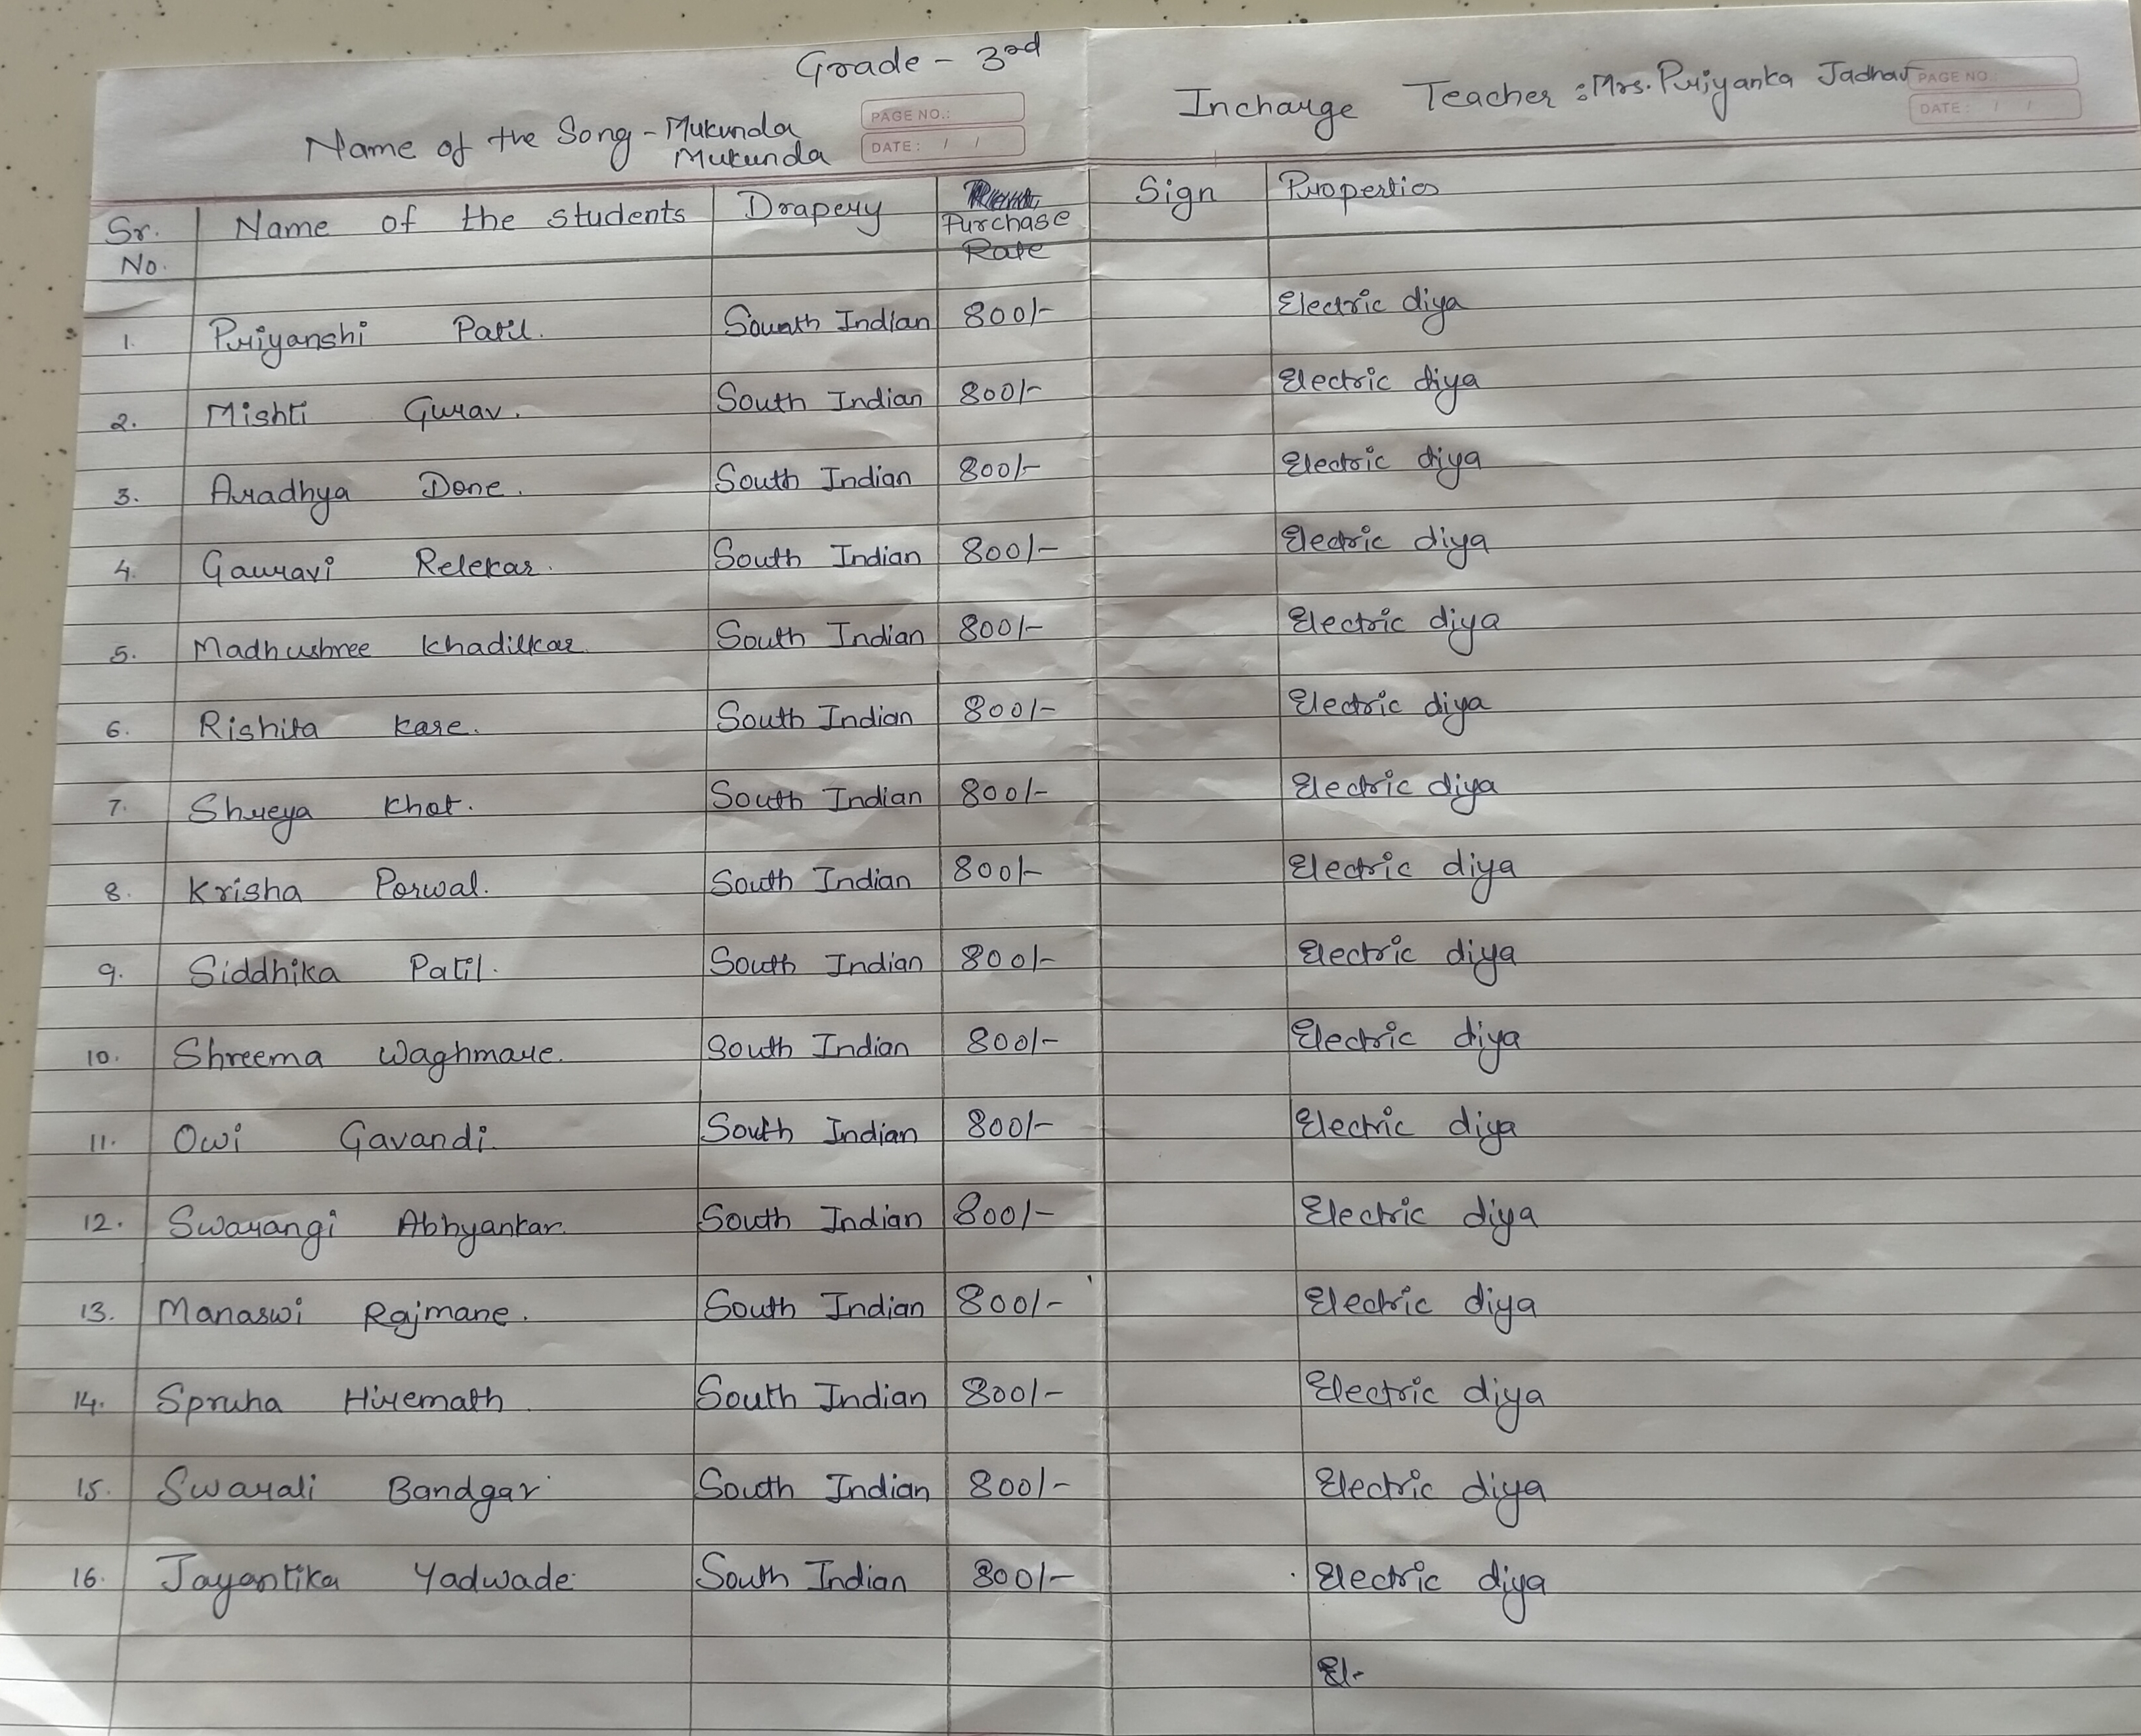 Grade - 3rd
Incharge Teacher : Mrs. Priyanka Jadhav
PAGE NO.:
DATE: / /
Name of the Song - Mukunda
Mukunda
PAGE NO.:
DATE: / /
Sr. No. Name of the students Drapery Purchase Rate Sign Properties
1. Priyanshi Patil. South Indian 800/- Electric diya
2. Mishti Gurav. South Indian 800/- Electric diya
3. Aradhya Done. South Indian 800/- Electric diya
4. Gauravi Relekar. South Indian 800/- Electric diya
5. Madhushree Khadilkar. South Indian 800/- Electric diya
6. Rishita Kare. South Indian 800/- Electric diya
7. Shreya Khot. South Indian 800/- Electric diya
8. Krisha Porwal. South Indian 800/- Electric diya
9. Siddhika Patil. South Indian 800/- Electric diya
10. Shreema Waghmare. South Indian 800/- Electric diya
11. Owi Gavandi. South Indian 800/- Electric diya
12. Swarangi Abhyankar. South Indian 800/- Electric diya
13. Manaswi Rajmane. South Indian 800/- Electric diya
14. Spruha Hiremath. South Indian 800/- Electric diya
15. Swarali Bandgar South Indian 800/- Electric diya
16. Jayantika Yadwade South Indian 800/- Electric diya